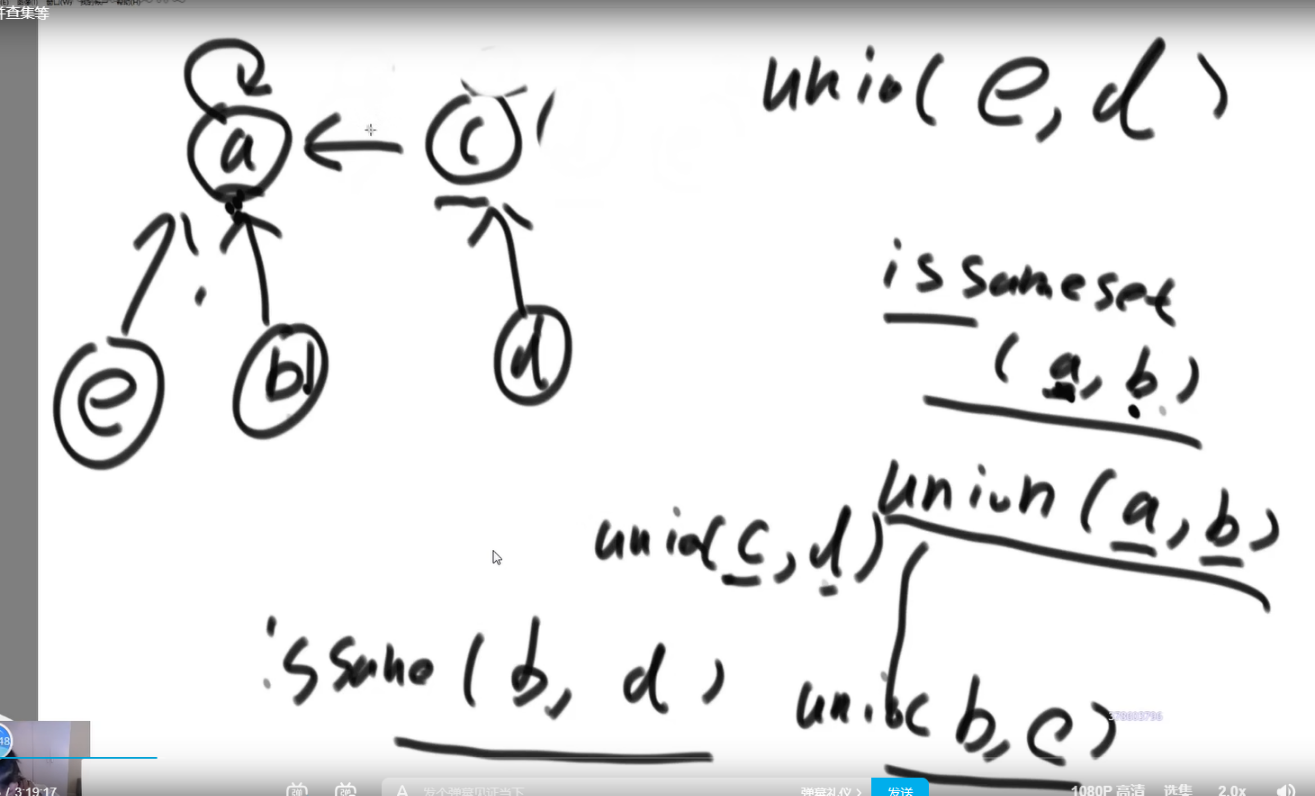 并查集等
a
c
e
b
d
unio(e,d)
issameset
(a,b)
union(a,b)
unio(c,d)
issame(b,d)
unio(b,e)
48
/ 3:19:17
A
发个弹幕见证当下
弹幕礼仪 >
发送
1080P 高清
选集
2.0x